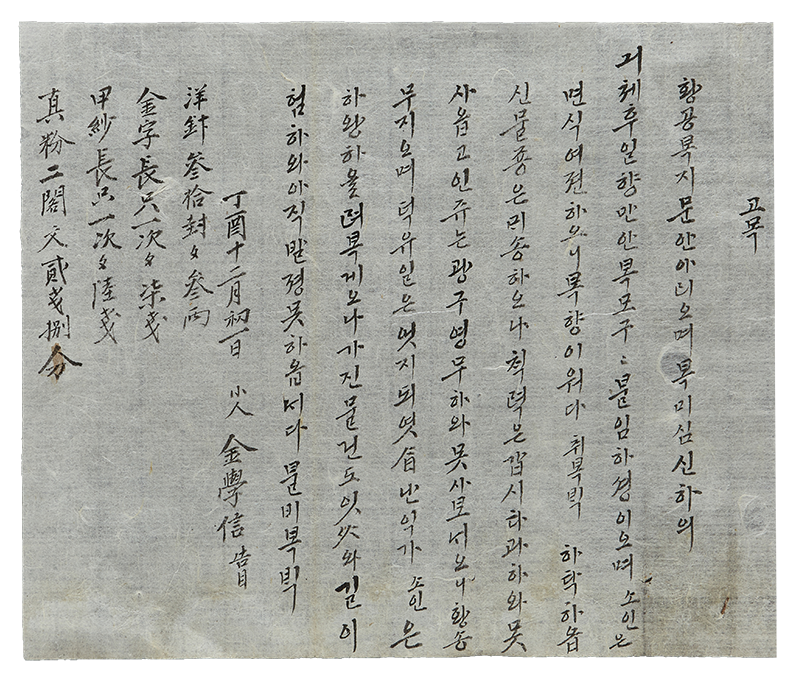 고목
황공복지 문안 아뢰오며 복미심 신하의
긔체후 일향만안 복모구〻 불임하졍이오며 소인은
면식 여젼하오니 복향이워다 취복빅 하탁하옵
신 물죵은 미송하오나 쳑력은 갑시 타과하와 못
사옵고 인쥬는 광구영무하와 못사보 오니 황송
무지오며 덕유일은 엇지 되엿 난익가 소인은
하왕하올려 복계오나 가진 물건도 잇 와 길이
험하와 아직 발졍 못하옵 다 물비복빅
丁酉十二月初一日 小人 金學信 告目
洋針 叄拾封文 叄兩
金字長只一次文 柒戔
甲紗長只一次文 陸戔
真粉二閤文 貳戔捌分